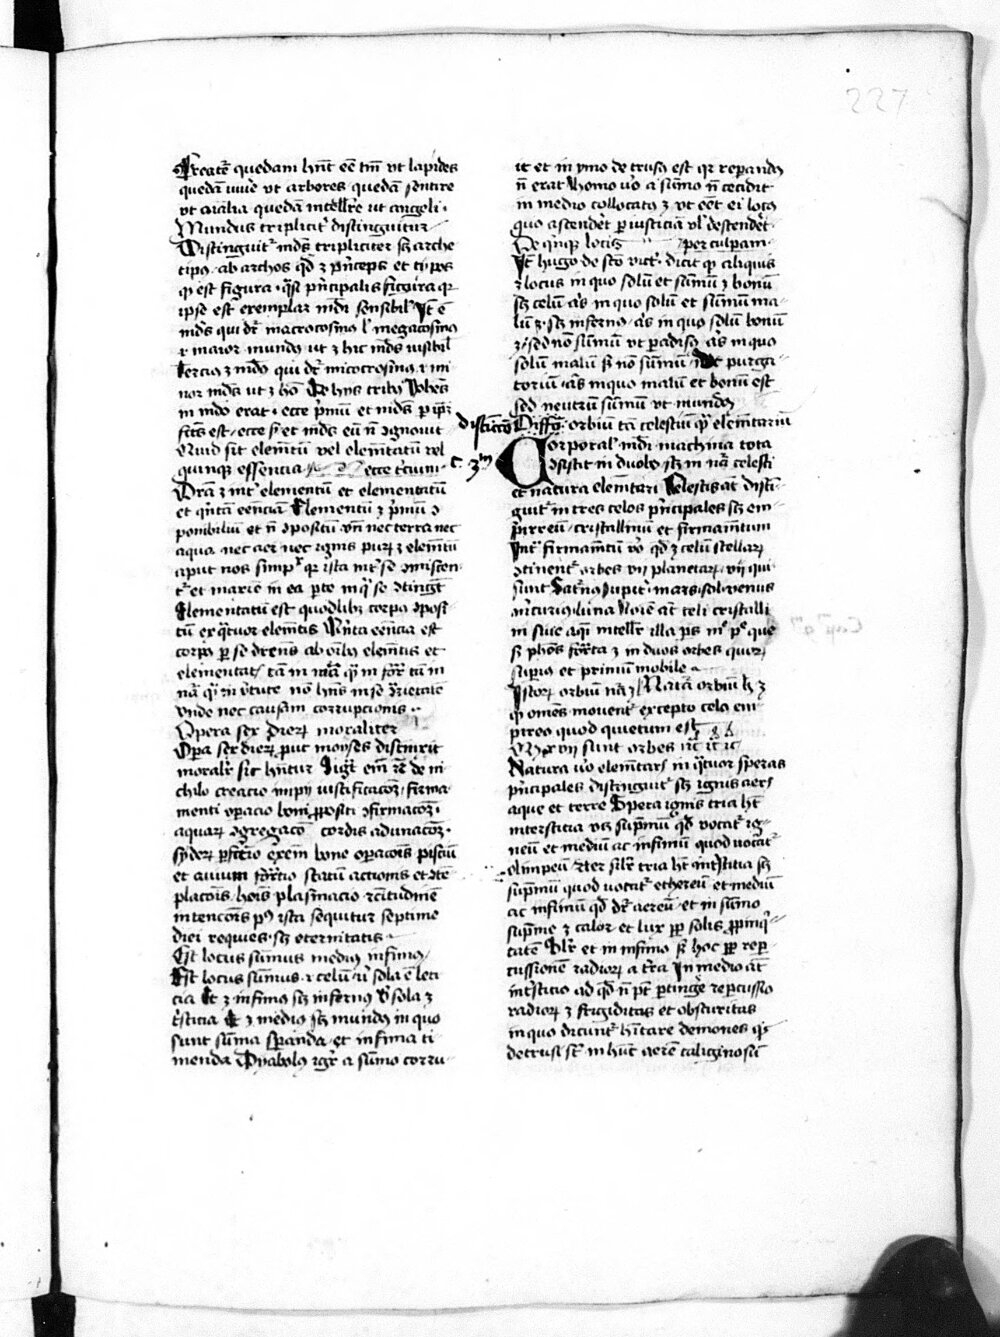 227
Creatae quedam hnt ee tm vt lapides
quedā viuūe vt arbores quedā sentire
vt aīalia quedā intellre ut angeli ·
Mundus triplicit distinguitur
Distinguit mds tripliciter sz arche
tipus · ab archos qd ē pnceps et tipos
qi est figura · qsi principalis figura qr
ipse est exemplar mdi sensibil Jt ē
mds qui dr macrocosmus l megacosmus
i maior mundus ut ē hic mds uisibil
Tercius ē mds qui dr microcosmus i mi
nor mds ut ē hō De hns tribus Johes
in mdo erat · ecce pmus et mds p ipm
fcūs est · ecce s et mds eū n cgnouit
Quid sint elemtū vel elemtatū vel
quinque essencia ecce tcius ·
Dra ē int elementū et elementatū
et qntā eenciā Elementū ē pmū c
ponibiliū et n cpositū vn nec terra nec
aqua nec aer nec ignis purus ē elemtū
aput nos simplr qr ista int se cmiscent
t et maxie in ea pte in q se ctingt
Elementatū est quodlibz corpus cpost
tū ex qtuor elemtis Qnta eencia est
corpus p se drens ab oibus elemtis et
elementat tam in mā q in for tam in
nā q in vtute non hns in se crietate
vnde nec causam corrupcionis ·
Opera sex dierz moraliter
Opa sex dierz put moyses distinxit
moralr sic hntur Sigt em re de ni
chilo creacio impij iustificacōz · firma
menti opacio boni ppositi cfirmacōz ·
aquarz cgregacō cordis adunacōz ·
syderz pfctio exem bone opacois pisciū
et auium forctio statū actionis et cte
placois · hois plasmacio rcitudinē
intencois p ista sequitur septime
diei requies · sz eternitatis
Est locus sumus medius infimus
Est locus sumus · i celū · vi sola ē leti
cia Et ē infimus sz infernus v sola ē
tsticia Et ē medius sz mundus in quo
sunt suma spanda · et infima ti
menda Dyabolus igr a sumo corru
it et in ymo detrusus est qr repandus
n erat homo uo a sumo n cecidit
in medio collocatus ē vt eet ei locus
quo ascendet p iusticiā vl descendet
De qnque locis per culpam
Jt hugo de sco vict · dicit qp aliquis
ē locus in quo solū et sumū ē bonū
sz celū · als in quo solū et sumū ma
lū ē · sz infernus · als in quo solū bonū
ē · sed nō sumū vt padisus · als in quo
solū malū sz nō sumū vt purga
toriū · als in quo malū et bonū est
sed neutrū sumū vt mundus
distinctō Diffa orbiū tā celestiū q elemtariū
c · 3m Corporal mdi machina tota
csistit in duobus sz in nā celesti
et natura elemtari Celestis at disti
guit in tres celos pncipales sz em
pirreū · cristallinū et firmamtum
Int firmamtū vo qd ē celū stellarz
ctinent orbes vij planetarz · vij qui
sunt Satnus Jupit · mars · sol · venus
mcurius luna Noie at celi cristalli
ni siue aqi intellr illa ps
sz phos forcta ē in duos orbes quorz
supius et primum mobile
Jstorz orbiū nā ē Natā orbiū hz ē
qp omes mouent excepto celo em
pireo quod quietum est
Mox vij sunt orbes rc tc rc
Natura uo elemtaris in qtuor speras
pncipales distinguit · sz ignis aeris
aque et terre Spera ignis tria ht
intersticia vz supmū qd vocat ig
neū et mediū ac infimū quod vocat
olimpeū ether silr tria ht intstitia sz
supmū quod vocat ethereū et mediū
ac infimū qd dr aereū · et in sumo
supme ē calor et lux pp solis ppinqui
tatē Slr et in infimo sz hoc pp reper
cussionē radiorz a tra In medio at
intstitio ad qd n pt ptinge repcussio
radiorz ē frigiditas et obscuritas
in quo dicunt hitare demones qi
detrusi st in hūc aere caliginosū